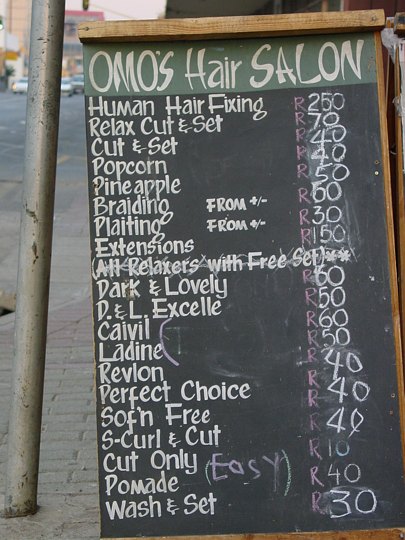 OMO'S Hair SALON
Human Hair Fixing R 250
Relax Cut & Set R 70
Cut & Set R 40
Popcorn R 40
Pineapple R 50
Braiding FROM +/- R 60
Plaiting FROM +/- R 30
Extensions R 150
(All Relaxers with Free Set)**
Dark & Lovely R 60
D. & L. Excelle R 50
Caivil R 60
Ladine R 50
Revlon R 40
Perfect Choice R 40
Sof'n Free R 40
S-Curl & Cut
Cut Only (Easy) R 10
Pomade R 40
Wash & Set R 30